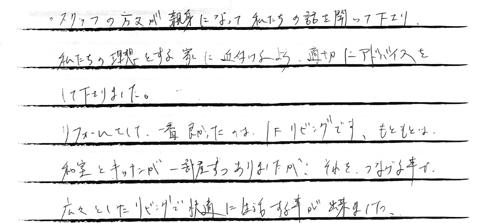 ・スタッフの方々が親身になって私たちの話を聞いて下さり、
私たちの理想とする家に近付けるよう、適切にアドバイスを
して下さりました。
リフォームをして、一番良かったのは、1Fリビングです。もともとは、
和室とキッチンが一部屋ずつありましたが、それを、つなげる事で、
広々としたリビングで快適に生活する事が出来ました。